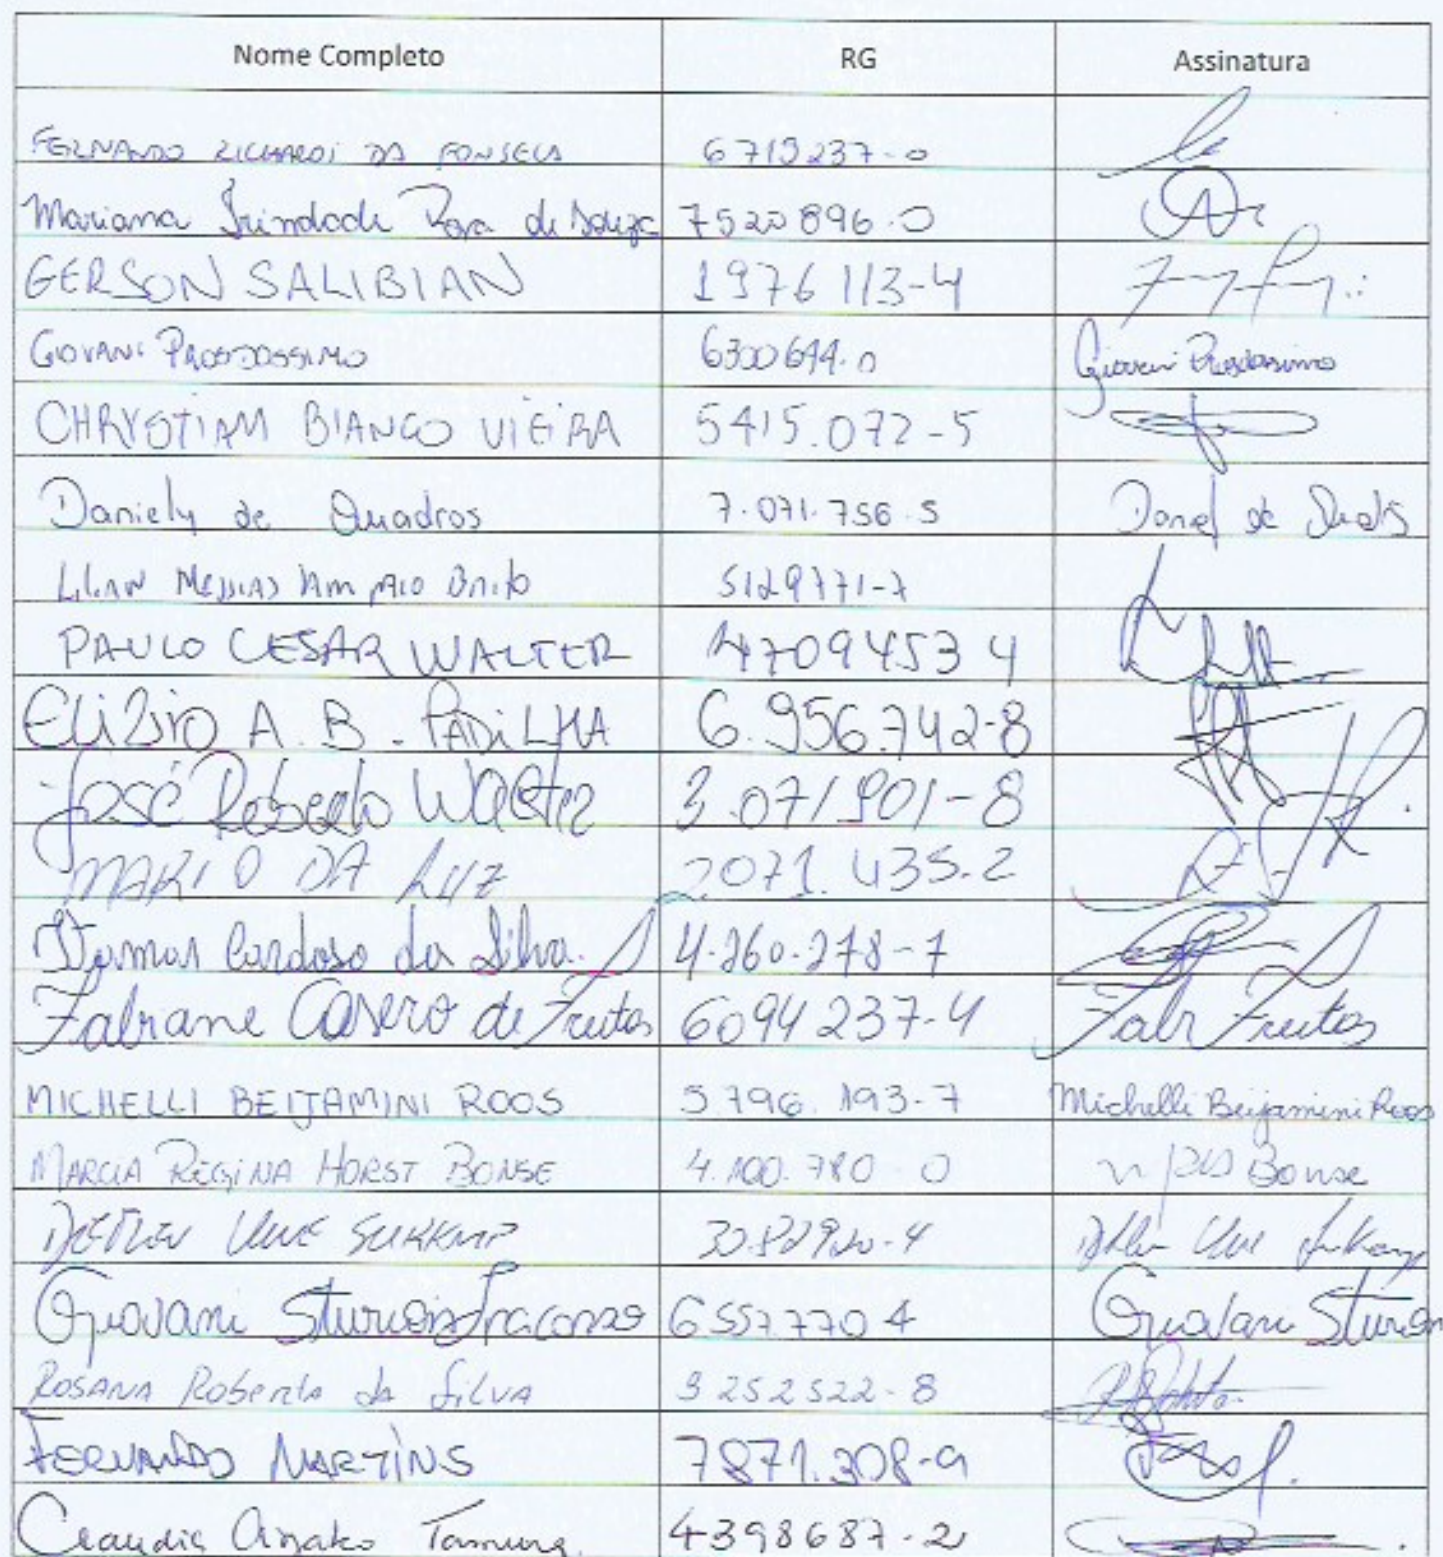 Nome Completo RG Assinatura
FERNANDO RICHARDI DA FONSECA 6719237-0
Mariana Trindade Rosa de Souza 7520896-0
GERSON SALIBIAN 1976113-4
GIOVANI PROSDOSSIMO 6300644-0 Giovani Prosdossimo
CHRYSTIAM BIANCO VIEIRA 5415.072-5
Daniely de Quadros 7.071.756-5 Daniel de
LILIAN MESSIAS SAMPAIO Brito 5129771-7
PAULO CESAR WALTER 47094534
ELIZIO A. B. PADILHA 6.956.742-8
José Roberto Walter 3.071901-8
MARIO DA LUZ 2071.435-2
Itamar Cardoso da Silva. 4.260.278-7
Fabiane Casero de Freitas 6094237-4 Fabi Freitas
MICHELLI BEIJAMINI ROOS 5.796.193-7 Michelli Beijamini Roos
MARCIA REGINA HORST BONSE 4.100.780-0 Bonse
DETLEV UWE SURKAMP Uwe Surkamp
Giovani 6557.7704 Giovani
ROSANA Roberta da SILVA 9252522-8
FERNANDO MARTINS 7871.308-9
Claudia Tamura 4398687-2